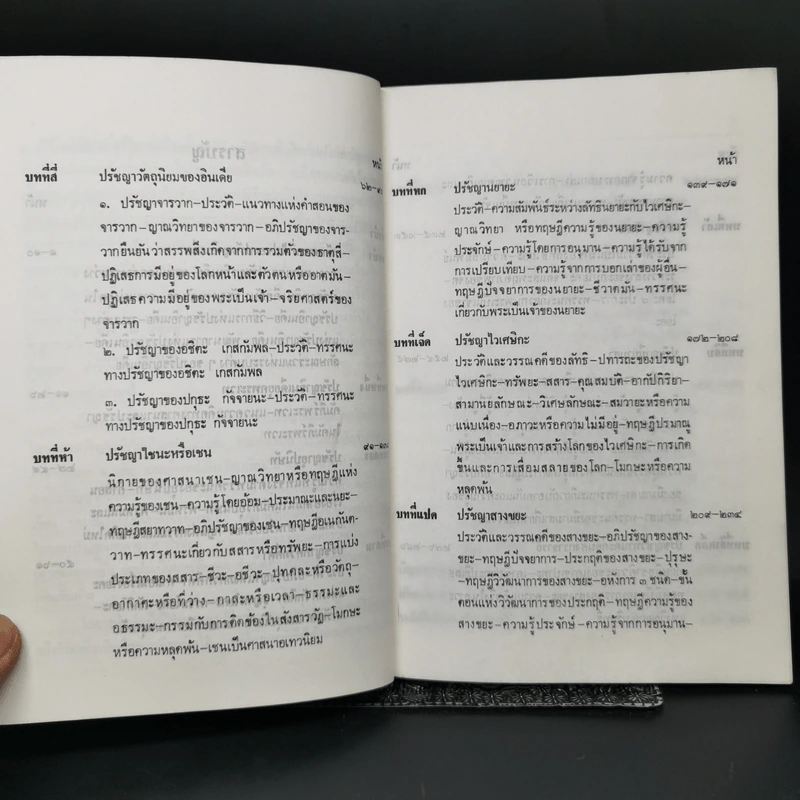 หน้า
บทที่สี่ ปรัชญาวัตถุนิยมของอินเดีย
๑. ปรัชญาจารวาก-ประวัติ-แนวทางแห่งคำสอนของ
จารวาก-ญาณวิทยาของจารวาก-อภิปรัชญาของจาร-
วากยืนยันว่าสรรพสิ่งเกิดจากการรวมตัวของธาตุสี่-
ปฏิเสธการมีอยู่ของโลกหน้าและตัวตนหรืออาตมัน-
ปฏิเสธความมีอยู่ของพระเป็นเจ้า-จริยศาสตร์ของ
จารวาก
๒. ปรัชญาของอชิตะ เกสกัมพล-ประวัติ-ทรรศนะ
ทางปรัชญาของอชิตะ เกสกัมพล
๓. ปรัชญาของปกุธะ กัจจายนะ-ประวัติ-ทรรศนะ
ทางปรัชญาของปกุธะ กัจจายนะ
บทที่ห้า ปรัชญาไชนะหรือเชน
นิกายของศาสนาเชน-ญาณวิทยาหรือทฤษฎีแห่ง
ความรู้ของเชน-ความรู้โดยอ้อม-ประมาณะและนยะ-
ทฤษฎีสยาทวาท-อภิปรัชญาของเชน-ทฤษฎีอเนกันต-
วาท-ทรรศนะเกี่ยวกับสสารหรือทรัพยะ-การแบ่ง
ประเภทของสสาร-ชีวะ-อชีวะ-ปุทคละหรือวัตถุ-
อากาศะหรือที่ว่าง-กาละหรือเวลา-ธรรมะและ
อธรรมะ-กรรมกับการติดข้องในสังสารวัฏ-โมกษะ
หรือความหลุดพ้น-เชนเป็นศาสนาอเทวนิยม
หน้า
บทที่หก ปรัชญานยายะ ๑๓๙-๑๗๑
ประวัติ-ความสัมพันธ์ระหว่างลัทธินยายะกับไวเศษิกะ-
ญาณวิทยา หรือทฤษฎีความรู้ของนยายะ-ความรู้
ประจักษ์-ความรู้โดยการอนุมาน-ความรู้ได้รับจาก
การเปรียบเทียบ-ความรู้จากการบอกเล่าของผู้อื่น-
ทฤษฎีปัจจยาการของนยายะ-ชีวาตมัน-ทรรศนะ
เกี่ยวกับพระเป็นเจ้าของนยายะ
บทที่เจ็ด ปรัชญาไวเศษิกะ ๑๗๒-๒๐๘
ประวัติและวรรณคดีของลัทธิ-ปทารถะของปรัชญา
ไวเศษิกะ-ทรัพยะ-สสาร-คุณสมบัติ-อากัปกิริยา-
สามานยลักษณะ-วิเศษลักษณะ-สมวายะหรือความ
แนบเนื่อง-อภาวะหรือความไม่มีอยู่-ทฤษฎีปรมาณู
พระเป็นเจ้าและการสร้างโลกของไวเศษิกะ-การเกิด
ขึ้นและการเสื่อมสลายของโลก-โมกษะหรือความ
หลุดพ้น
บทที่แปด ปรัชญาสางขยะ ๒๐๙-๒๓๔
ประวัติและวรรณคดีของสางขยะ-อภิปรัชญาของสาง-
ขยะ-ทฤษฎีปัจจยาการ-ประกฤติของสางขยะ-ปุรุษะ
-ทฤษฎีวิวัฒนาการของสางขยะ-อหังการ ๓ ชนิด-ขั้น
ตอนแห่งวิวัฒนาการของประกฤติ-ทฤษฎีความรู้ของ
สางขยะ-ความรู้ประจักษ์-ความรู้จากการอนุมาน-